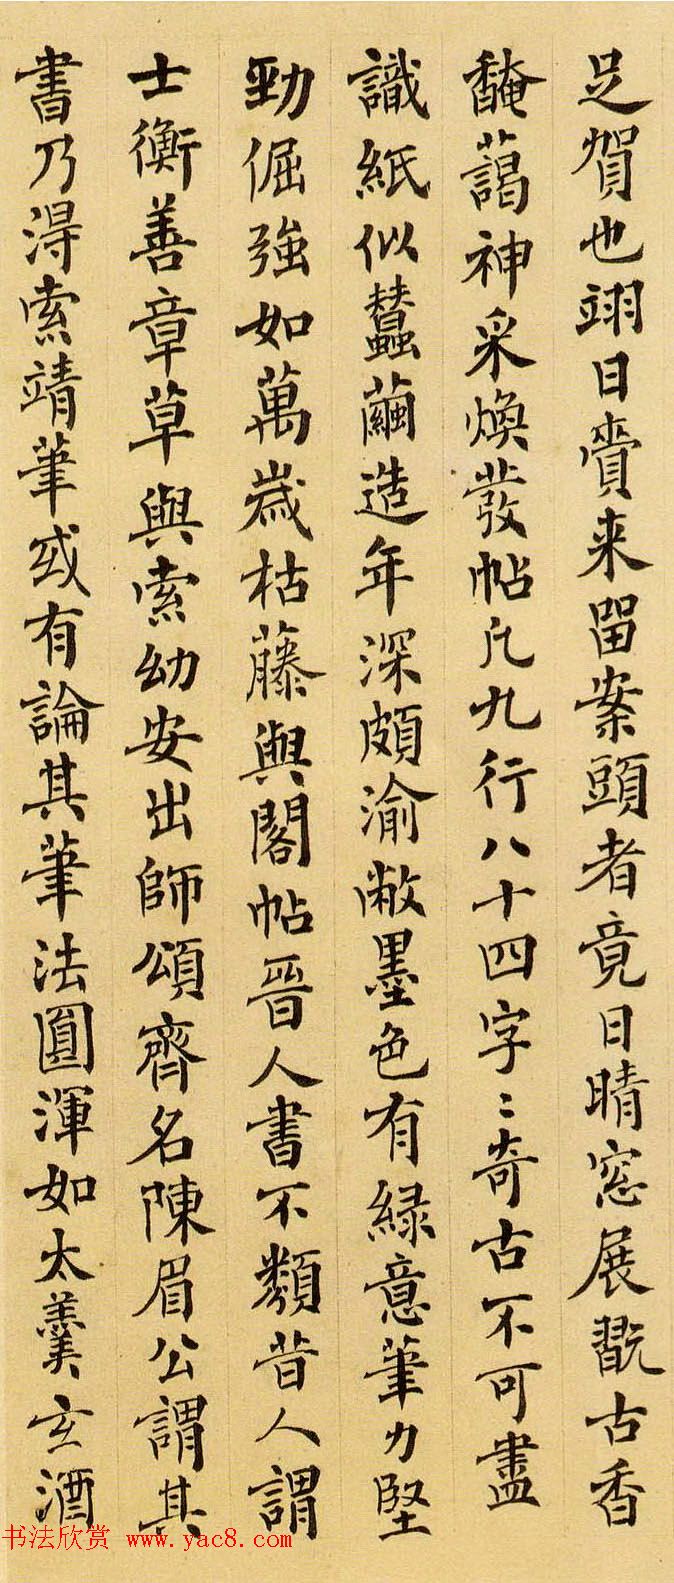 足賀也翊日賫来留案頭者竟日晴窓展翫古香
馣藹神采煥發帖凡九行八十四字〻奇古不可盡
識紙似蠶繭造年深頗渝敝墨色有緑意筆力堅
勁倔強如萬歲枯藤與閣帖晉人書不類昔人謂
士衡善章草與索幼安出師頌齊名陳眉公謂其
書乃得索靖筆或有論其筆法圓渾如太羹玄酒
书法欣赏 www.yac8.com